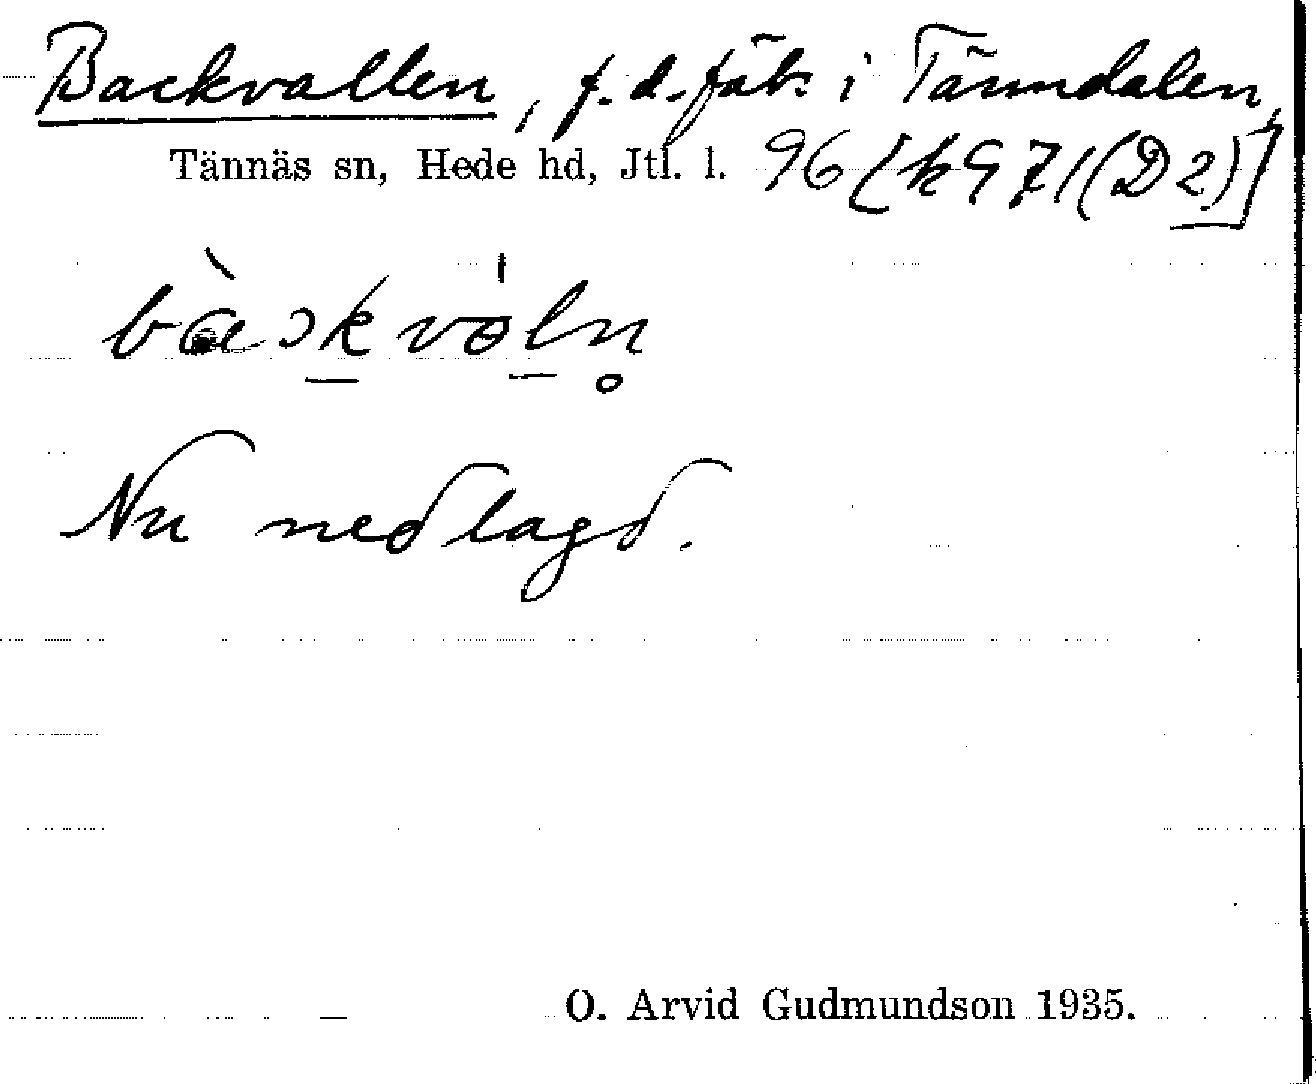 Backvallen, f. d. fäb. i Tänndalen,
Tännäs sn, Hede hd, Jtl. l. 96 [k 97/(D2)]
Nu nedlagd.
O. Arvid Gudmundson 1935.